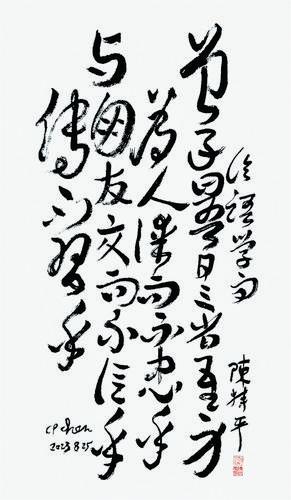 論語学而
曾子曰吾日三省吾身
為人謀而不忠乎
与朋友交而不信乎
傳不習乎
陳平
CP Chen
2023.8.25